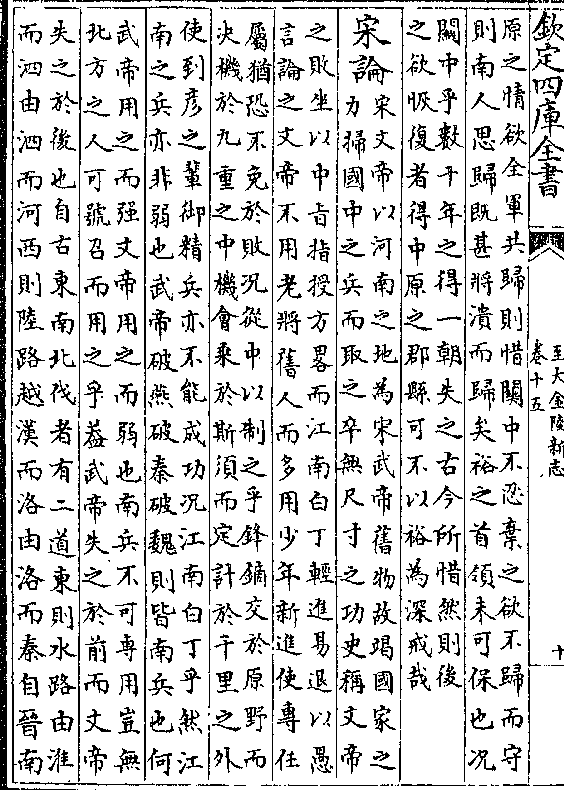 欽定四庫全書
至大金陵新志
卷十五
十
原之情欲全軍共歸則惜關中不忍棄之欲不歸而守
則南人思歸既甚將潰而歸矣裕之首領未可保也况
關中乎數十年之得一朝失之古今所惜然則後
之欲恢復者得中原之郡縣可不以裕為深戒哉
宋論
宋文帝以河南之地為宋武帝舊物故竭國家之
力掃國中之兵而取之卒無尺寸之功史稱文帝
之敗坐以中旨指授方畧而江南白丁輕進易退以愚
言論之文帝不用老將舊人而多用少年新進使專任
屬猶恐不免於敗况從中以制之乎鋒鏑交於原野而
决機於九重之中機會乘於斯須而定計於千里之外
使到彦之輩御精兵亦不能成功况江南白丁乎然江
南之兵亦非弱也武帝破燕破秦破魏則皆南兵也何
武帝用之而强文帝用之而弱也南兵不可専用豈無
北方之人可號召而用之乎葢武帝失之於前而文帝
失之於後也自古東南北伐者有二道東則水路由淮
而泗由泗而河西則陸路越漢而洛由洛而秦自晉南